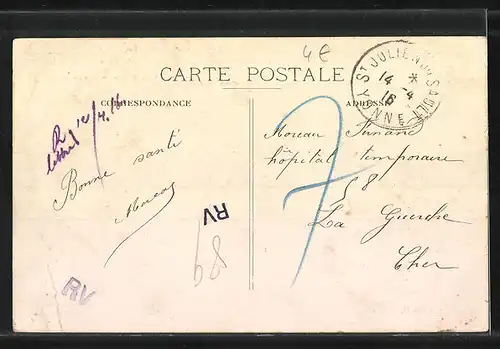 4€
CARTE POSTALE
CORRESPONDANCE
ADRESSE
ST JULIEN DU SAULT
14 *
4
16
YONNE
4.16
Bonne santé
Moreau
RV
68
RV
7
Moreau
hôpital temporaire
58
La Guerche
Cher